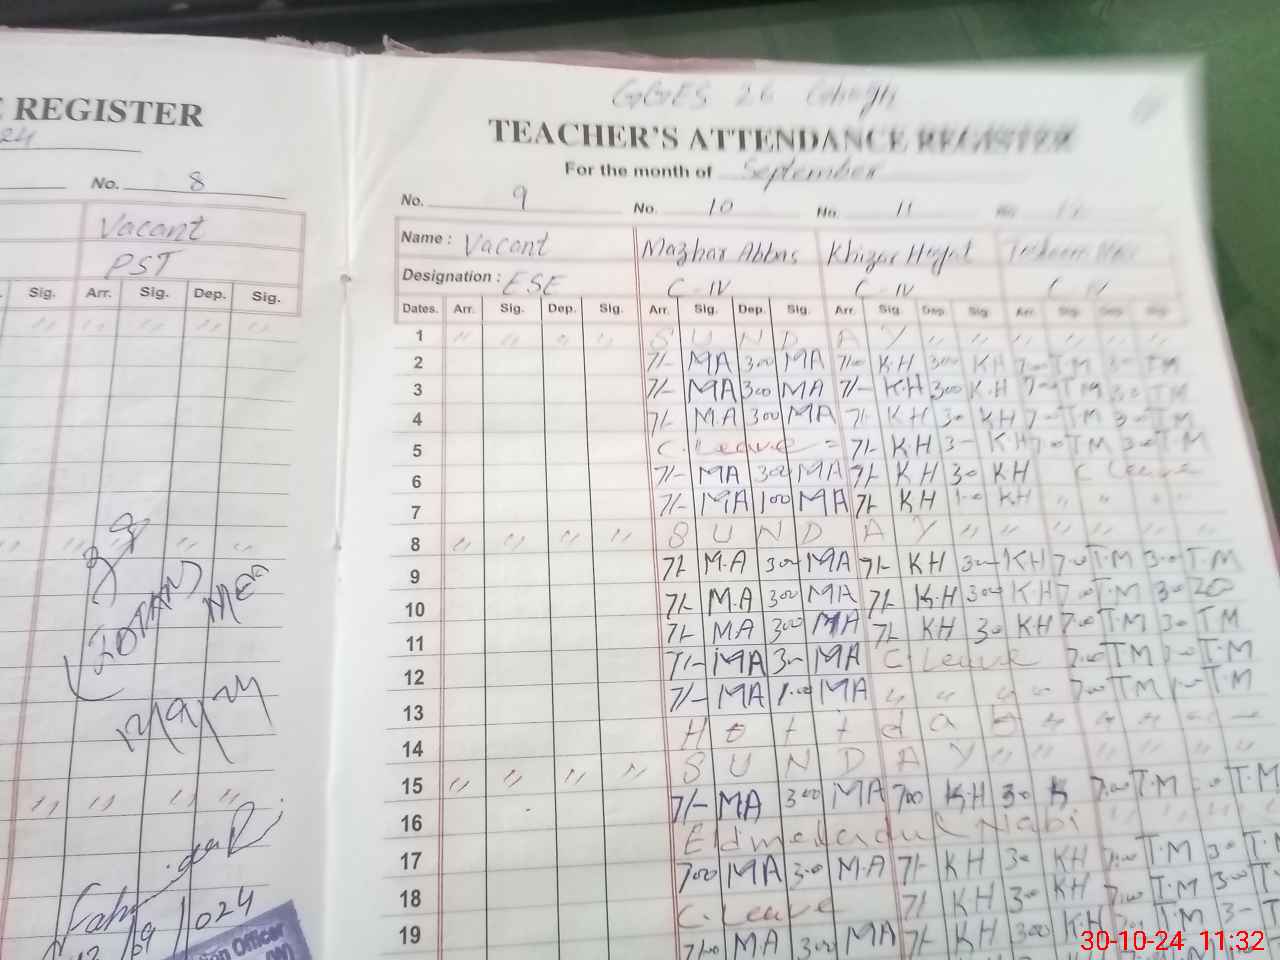 REGISTER
24
No. 8
Vacant
PST
Sig. Arr. Sig. Dep. Sig.
GGES 26
TEACHER'S ATTENDANCE REGISTER
For the month of September
No. 9 No. 10 No. 11
Name : Vacant Mazhar Abbas Khizar Hayat
Designation : ESE C-IV C-IV C-IV
Dates. Arr. Sig. Dep. Sig. Arr. Sig. Dep. Sig. Arr. Sig. Dep. Sig. Arr. Sig. Dep. Sig.
1 " " " " S U N D A Y " " " " " "
2 7/- MA 300 MA 7/00 K.H 300 KH 7:00 T.M 300 TM
3 7/- MA 300 MA 7/- K.H 300 K.H 7:00 TM 300 TM
4 7/- M.A 300 MA 7/- KH 30 KH 7:00 TM 300 TM
5 C. Leave = 7/- K.H 3- KH 7:00 TM 300 T.M
6 7/- MA 300 MA 7/- KH 30 KH C Leave
7 7/- MA 100 MA 7/- KH 1:00 KH " " " "
8 " " " " S U N D A Y " " " " " "
9 7/- M.A 300 MA 7/- KH 300 KH 7:00 T.M 300 T.M
10 7/- M.A 300 MA 7/- K.H 300 K.H 7:00 T.M 300
11 7/- MA 300 MA 7/- KH 30 KH 7:00 T.M 30 TM
12 7/- MA 3- MA C. Leave 7:00 TM 300 T.M
13 7/- MA 1:00 MA " " " " 7:00 TM 1:00 T.M
14
15 " " " " S U N D A Y " " " "
16 7/- MA 300 MA 700 K.H 30 K 7:00 T.M 300 T.M
17 Eid
18 700 MA 300 M.A 7/- KH 30 KH 7:00 T.M 30 T.M
19 C. Leave 7/- KH 30 KH 7:00 T.M 300 T.M
7/00 MA 300 MA 7/- KH 300 K.H 7:00 T.M 3-
MEA
12/9/24
Officer
30-10-24 11:32